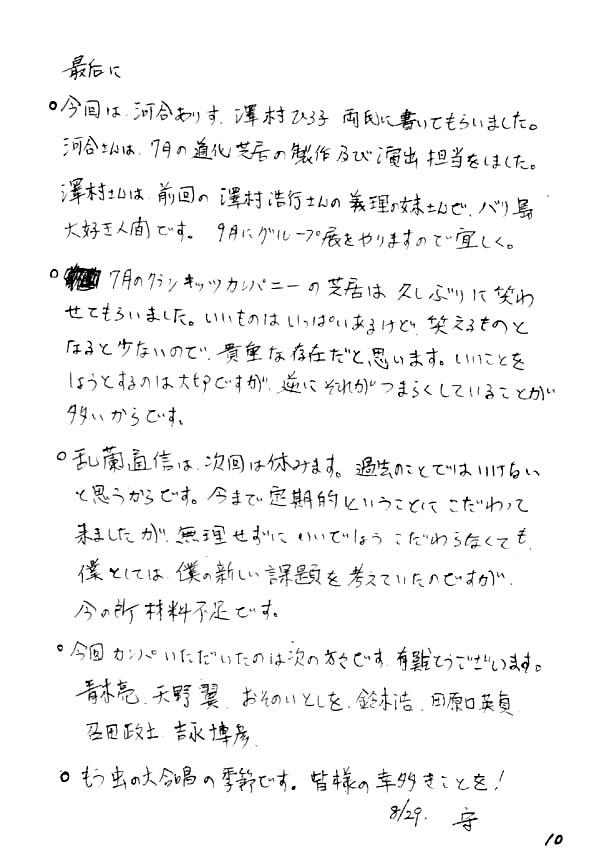 最后に
○今回は、河合ありす、澤村ひろ子 両氏に書いてもらいました。
河合さんは、7月の道化芝居の製作及び演出担当をしました。
澤村さんは、前回の澤村浩行さんの義理の妹さんで、バリ島
大好き人間です。 9月にグループ展をやりますので宜しく。
○ 7月のクランキッツカンパニーの芝居は久しぶりに笑わ
せてもらいました。いいものはいっぱいあるけど、笑えるものと
なると少ないので、貴重な存在だと思います。いいことを
しようとするのは大切ですが、逆にそれがつまらくしていることが
多いからです。
○乱蘭通信は、次回は休みます。過去のことではいけない
と思うからです。今まで定期的ということにこだわって
来ましたが、無理せずにいいでしょう こだわらなくても、
僕としては、僕の新しい課題を考えていたのですが、
今の所材料不足です。
○今回カンパいただいたのは次の方々です、有難とうございます。
青木亮、天野翼、おそのいとしを、鈴木浩、田原口英貞、
沼田政士、吉永博彦、
○もう虫の大合唱の季節です。皆様の幸多きことを！
8/29. 守
10